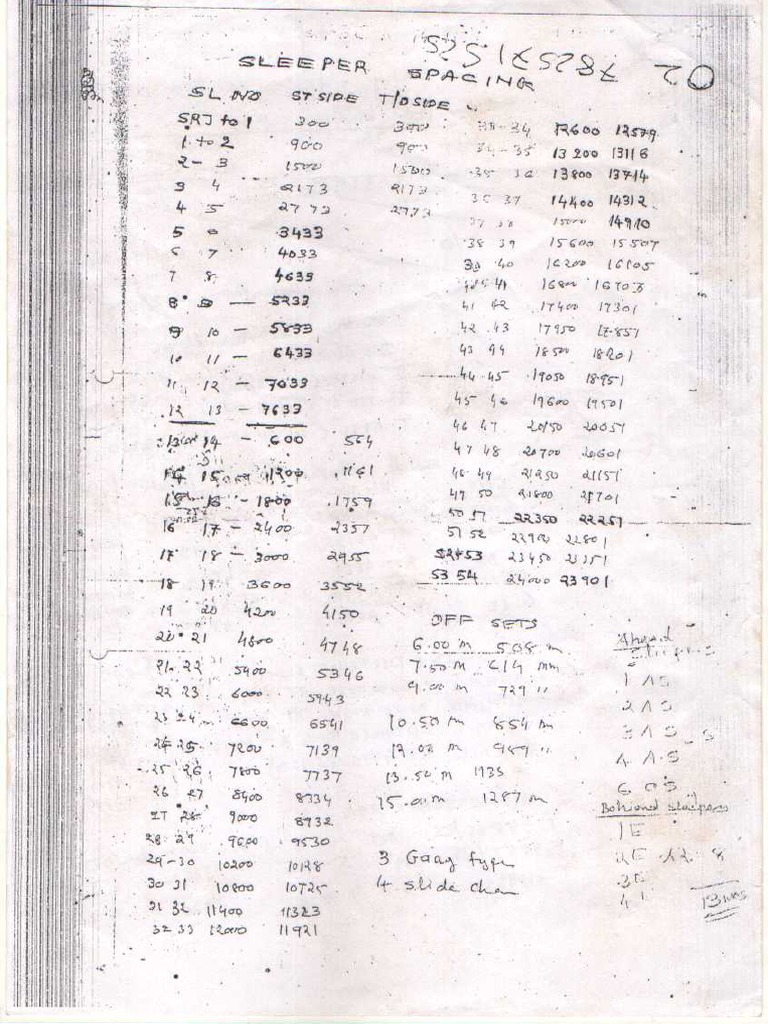 SLEEPER SPACING
SL.NO ST SIDE T/OSIDE
SRJ to 1 300 300
1 to 2 900 900
2 - 3 1500 1500
3 4 2173 2173
4 5 2773 2773
5 6 3433
6 7 4033
7 8 4633
8 9 — 5233
9 10 — 5833
10 11 — 6433
11 12 — 7033
12 13 — 7633
13 14 — 600 564
14 15 1200 1161
15 16 — 1800 1759
16 17 — 2400 2357
17 18 — 3000 2955
18 19 3600 3552
19 20 4200 4150
20 21 4800 4748
21 22 5400 5346
22 23 6000 5943
23 24 6600 6541
24 25 7200 7139
25 26 7800 7737
26 27 8400 8334
27 28 9000 8932
28 29 9600 9530
29-30 10200 10128
30 31 10800 10725
31 32 11400 11323
32 33 12000 11921
33-34 12600 12579
34-35 13200 13116
35 36 13800 13714
36 37 14400 14312
37 38 15000 14910
38 39 15600 15507
39 40 16200 16105
40 41 16800 16703
41 42 17400 17301
42 43 17950 17851
43 44 18500 18201
44 45 19050 18951
45 46 19600 19501
46 47 20150 20051
47 48 20700 20601
48 49 21250 21151
49 50 21800 21701
50 51 22350 22251
51 52 22900 22801
52 53 23450 23351
53 54 24000 23901
OFF SETS
6.00 m 508 m
7.50 m 614 mm
9.00 m 729 "
10.50 m 854 m
12.00 m 989 "
13.50 m 1933
15.00 m 1287 m
3 Gaag type
4 Slide chan
Ahead
1 AS
2 AS
3 AS
4 AS
6 OS
Behind sleepers
1E
2E
3E
4